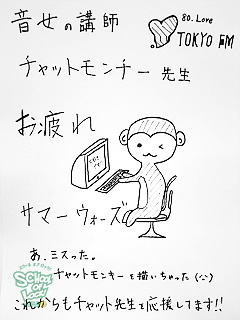 音女の講師
80.Love
TOKYO FM
チャットモンチー先生
お疲れ
サマーウォーズ
あ、ミスった。
チャットモンキーを描いちゃった(^^;)
SCHOOL OF LOCK!
これからもチャット先生を応援してます!!